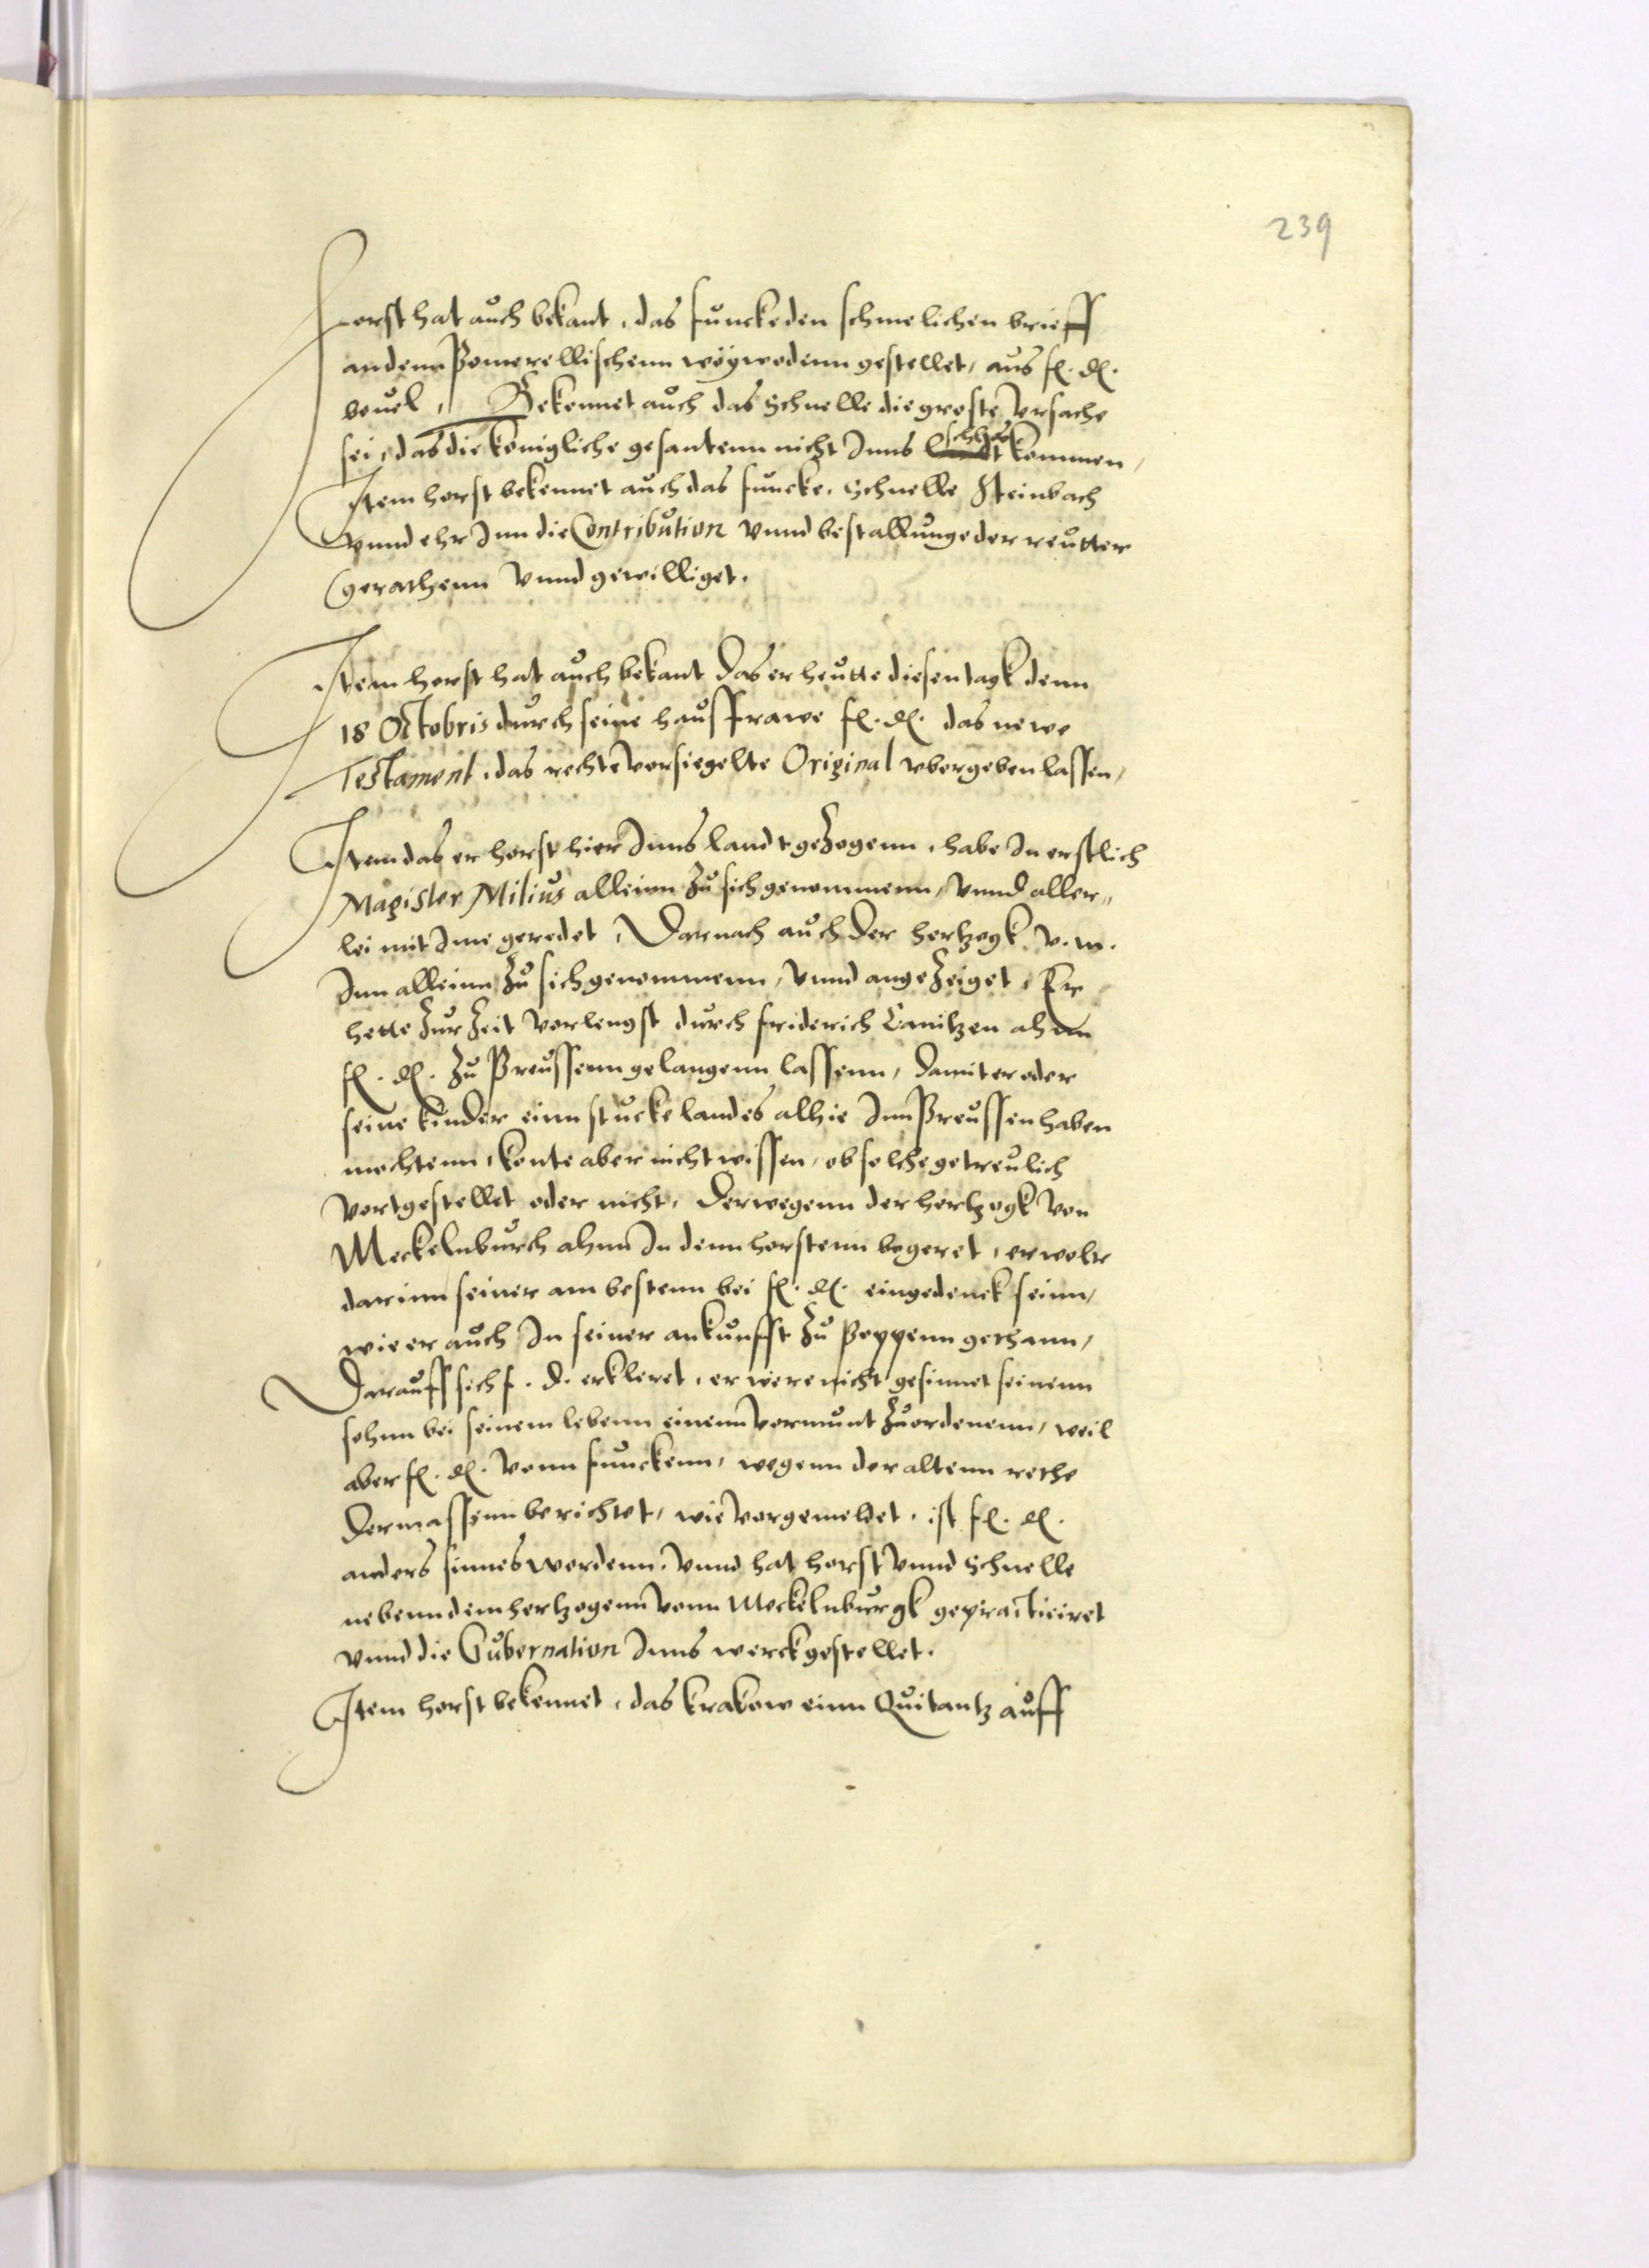 239
Horst hat auch bekant, das Funcke den schmelichen brieff
an denn Pomerellischenn woywodenn gestellet, aus fl. dl.
beuel, Bekennet auch das Schnelle die groste vrsache
sei, das die konigliche gesantenn nicht Inns schlos kommen,
Item Horst bekennet auch das Funcke, Schnelle Steinbach
vnnd ehr Inn die Contribution vnnd bestallunge der reutter
gerathenn vnnd gewilliget.
Item Horst hat auch bekant das er heutte diesen tagk denn
18 Octobris durch seine hausfrawe fl. dl. das newe
Testament, das rechte versiegelte Original vbergeben lassen,
Item das er Horst hier Inns landt gezogenn, habe In erstlich
Magister Milius allein zu sich genommenn, vnnd aller„
lei mit Ime geredet, Darnach auch der hertzogk v. m.
Inn alleinn zu sich genommenn, vnnd angezeiget, Er
hette zur Zeit vorlengst durch Friderich Canitzen ahnn
fl. dl. zu Preussenn gelangenn lassenn, damit er oder
seine kinder einn stucke landes alhie Inn Preussen haben
mochtenn, konte aber nicht wissen, ob solchs getreulich
vortgestellet oder nicht, derwegenn der hertzogk von
Meckelnburch ahnn In denn Horstenn begeret, er wolte
darinn seiner am bestenn bei fl. dl. eingedenck seinn,
wie er auch In seiner ankunfft zu Poppenn gethann,
Darauff sich f. d. erkleret, er were nicht gesinnet seinenn
sohnn bei seinem lebenn einenn vormunt zuordenenn, weil
aber fl. dl. vonn Funckenn, wegenn der altenn rethe
dermassenn berichtet, wie vorgemeldet, ist fl. dl.
anders sinnes wordenn, vnnd hat Horst vnnd Schnelle
nebenn dem hertzogenn vonn Meckelnburgk gepracticiret
vnnd die Gubernation Inns werck gestellet.
Item Horst bekennet, das Krakow einn Quitantz auff